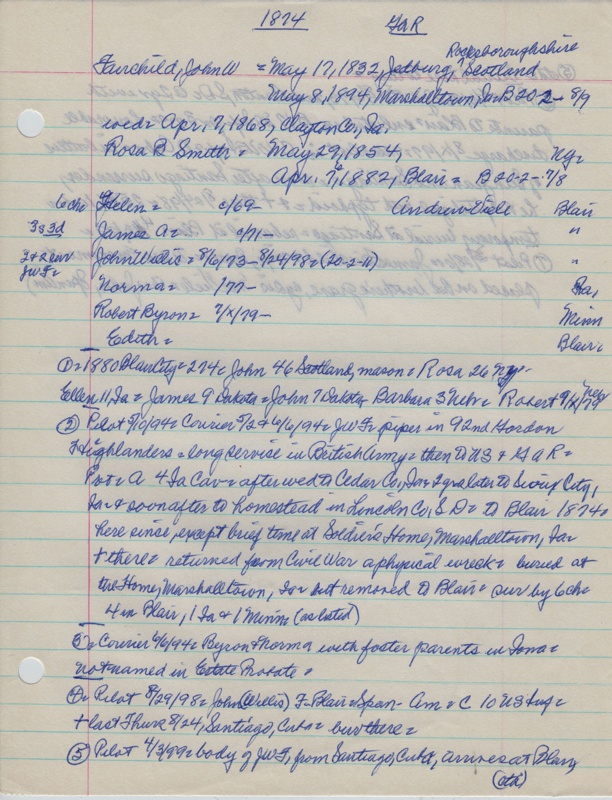 1874 GAR
Roxboroughshire
Fairchild, John W = May 17, 1832, Jedburg, Scotland
May 8, 1894, Marshalltown, Ia = B 20-2- 8/9
wed = Apr. 7, 1868, Clayton Co, Ia,
Rosa B Smith = May 29, 1854, NY =
Apr. 7, 1882, Blair = B 20-2- 7/8
6 ch Helen = c/69- Andrew Blair
3s3d James A = c/71- "
2+2 surv John Wallis = 8/6/73- 8/24/98 = (20-2-11) "
JWF = Norma = /77- Ia,
Robert Byron = 7/x/79- Minn
Edith = Blair =
① = 1880 Blair City = 274 = John 46 Scotland, mason = Rosa 26 NY =
Ellen 11, Ia = James 9 Dakota = John 7 Dakota = Barbara 3 Neb = Robert 9/x/79 Neb
② Pilot 5/10/94 = Courier 5/2 + 6/6/94 = JWF = piper in 92nd Gordon
Highlanders = long service in British Army = then to US + GAR =
Pvt = A 4 Ia Cav = after wed to Cedar Co, Ia = later to Sioux City,
Ia + soon after to homestead in Lincoln Co, S D = to Blair 1874 =
here since, except brief time at Soldier's Home, Marshalltown, Ia =
+ there = returned from Civil War a physical wreck = buried at
the Home, Marshalltown, Ia = but removed to Blair = sur by 6 ch =
4 in Blair, 1 Ia + 1 Minn = (as listed)
③ = Courier 6/6/94 = Byron + Norma with foster parents in Iowa =
not named in Estate Probate =
④ = Pilot 8/29/98 = John (Wallis) F = Blair = Span-Am = C 10 US Inf =
+ last Thurs 8/24, Santiago, Cuba = bur there =
⑤ Pilot 4/3/99 = body of JWF, from Santiago, Cuba, arrives at Blair,